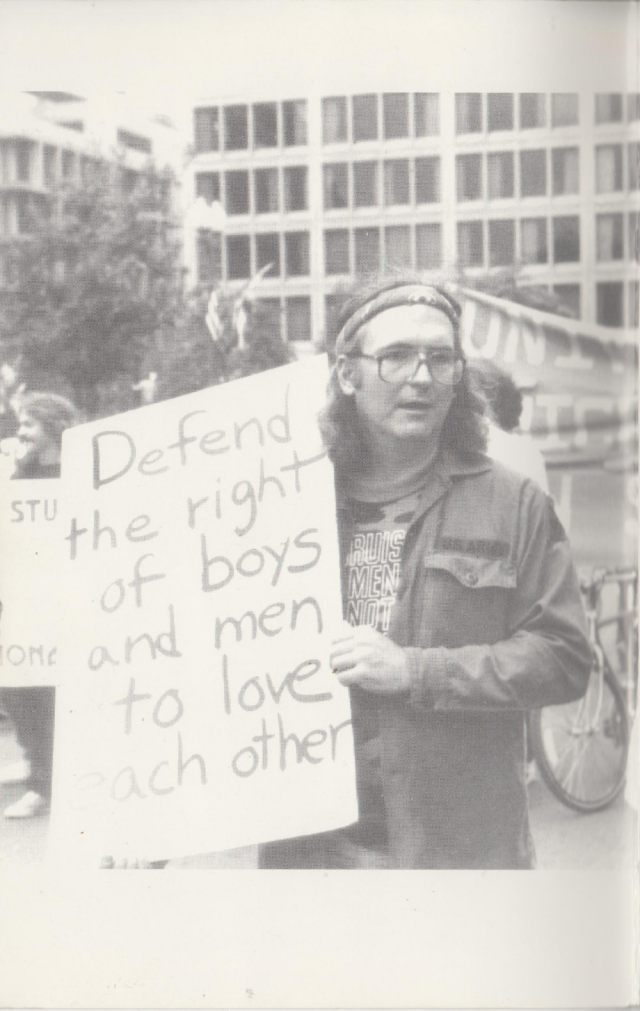 Defend
the right
of boys
and men
to love
each other
STU
RUIS
MEN
NOT
UNI